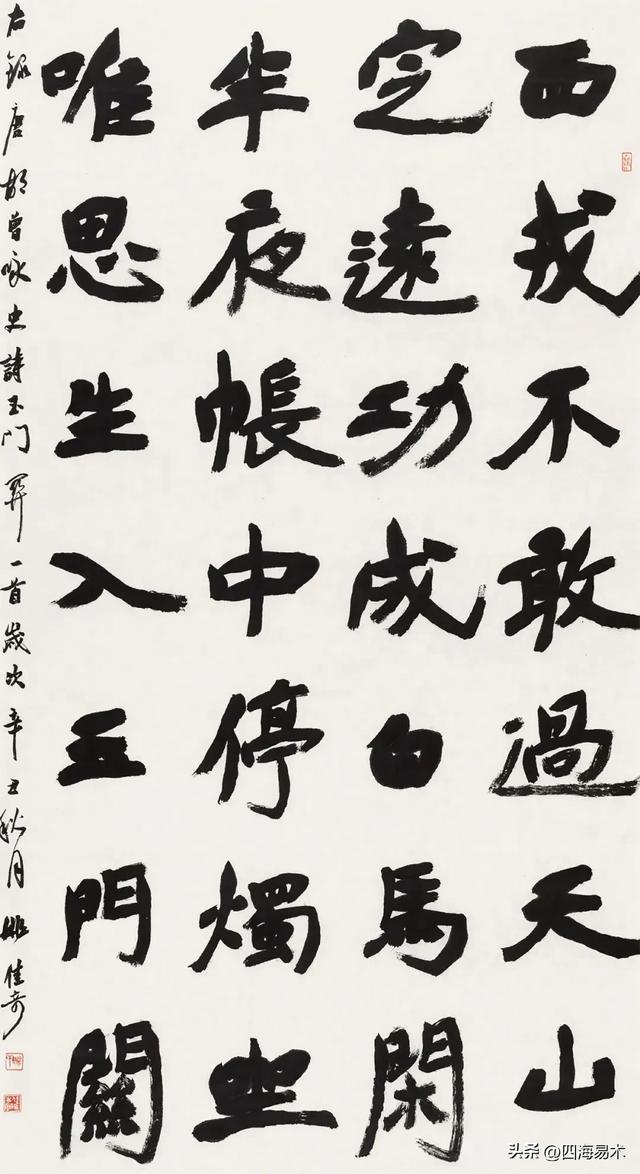 西戎不敢過天山
定遠功成白馬閑
半夜帳中停燭坐
唯思生入玉門關
右錄唐胡曾咏史詩玉門關一首歲次辛丑秋月姚佳奇
头条 @四海易木